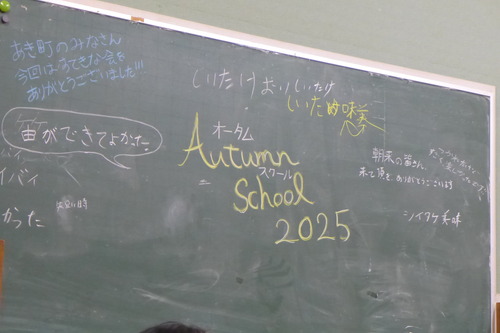 あき町のみなさん
今回はすてきな会を
ありがとうございました!!!
しいたけおいしいたけ
しいたけ美味
宙ができてよかった
イバイ
かった
オータム
Autumn
スクール
School
2025
朝来の皆さん、
来て頂き、ありがとうございます
シイタケ美味